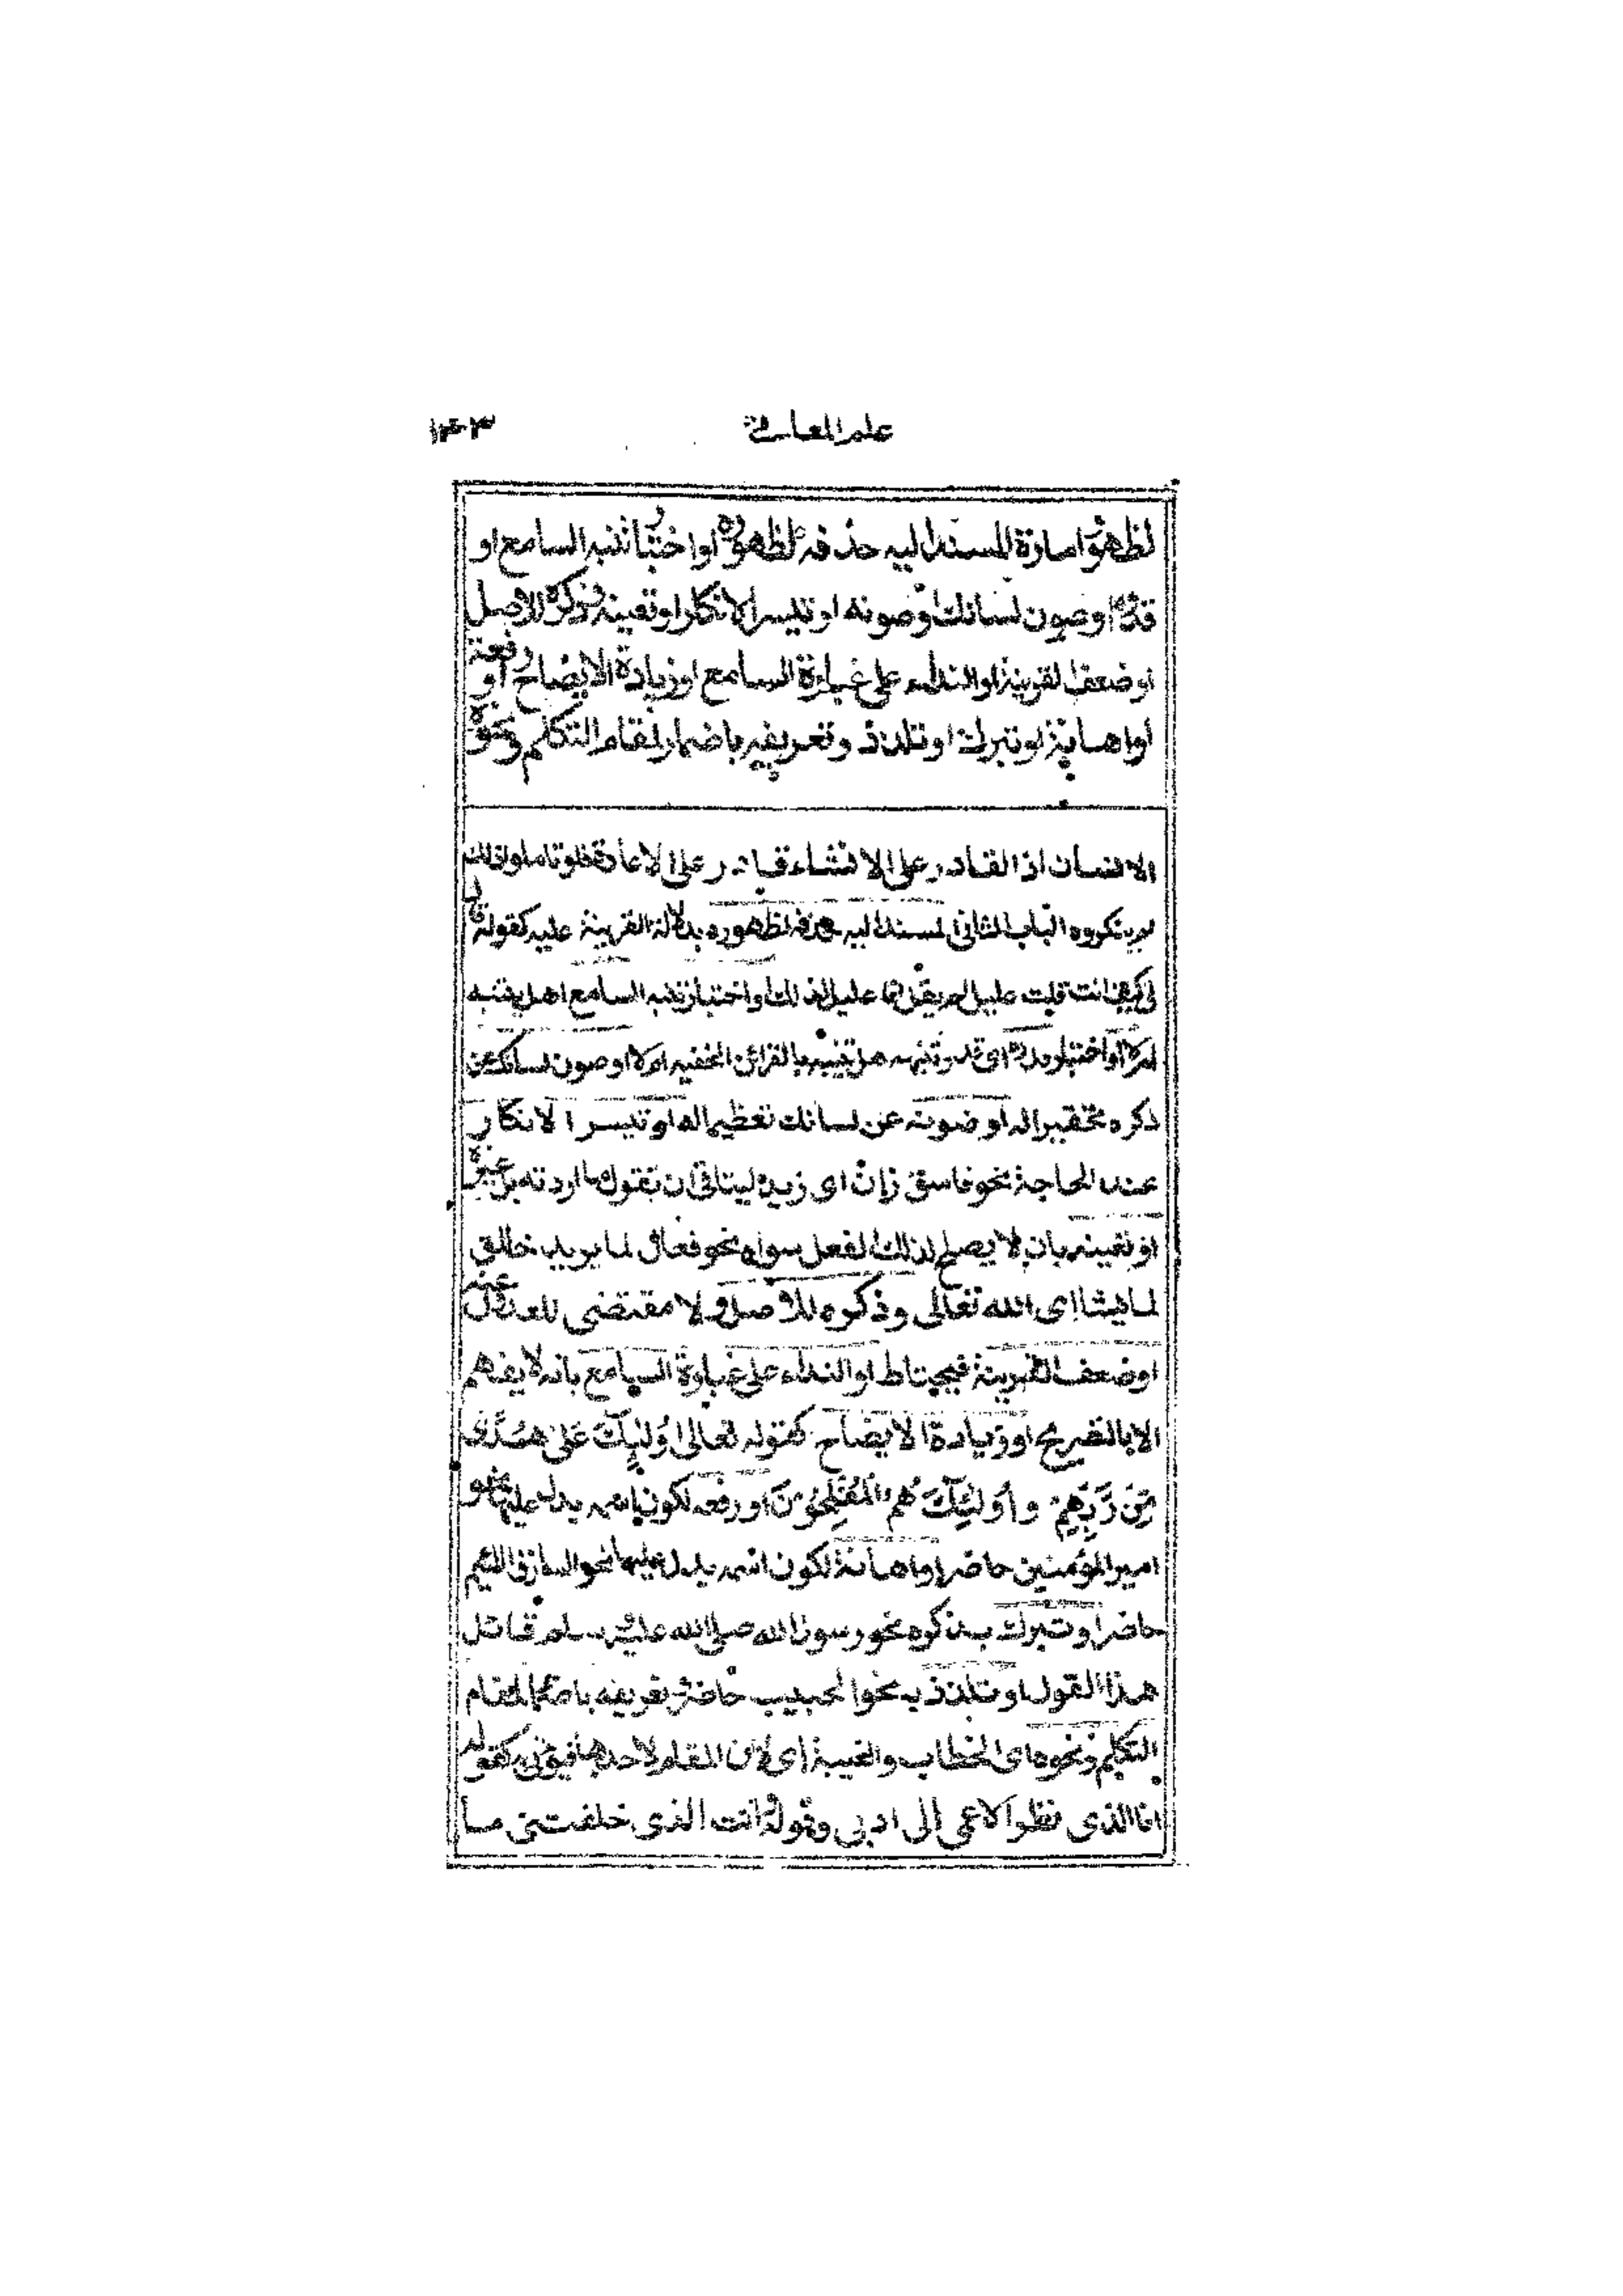 علم المعانى
١٤٣
لظهور امارة المسند اليه حذفه لظهوره او اختبار تنبه السامع او
قدره او صون لسانك او صونه او تيسر الانكار او تعينه وذكره للاصل
او ضعف القرينة او النداء على غباوة السامع او زيادة الايضاح او رفعة
او اهانة او تبرك او تلذذ وتعريفه باضمار لمقام التكلم ونحوه
الانسان اذ القادر على الانشاء قادر على الاعادة فلو تاملوا ذلك
لم ينكروه الباب الثانى المسند اليه حذفه لظهوره بدلالة القرينة عليه كقوله قال
لى كيف انت قلت عليل لم يقل انا عليل لذلك او اختبار تنبه السامع اهل يتنبه
ام لا او اختبار قدره اى قدر تنبهه هل يتنبه بالقرائن الخفيه ام لا او صون لسانك عن
ذكره تحقيرا له او صونه عن لسانك تعظيما له او تيسر الانكار
عند الحاجة نحو فاسق زان اى زيد ليتاتى ان تقول ما اردته بل غيره
او تعينه بان لا يصلح لذلك الفعل سواه نحو فعال لما يريد خالق
لما يشا اى الله تعالى وذكره للاصل ولا مقتضى للعدول عنه
او ضعف القرينة فيحتاط او النداء على غباوة السامع بانه لا يفهم
الا بالتصريح او زيادة الايضاح كقوله تعالى اُولٰٓئِكَ عَلىٰ هُدًى
مِّنْ رَّبِّهِمْ وَاُولٰٓئِكَ هُمُ الْمُفْلِحُوْنَ او رفعه لكون اسمه يدل عليها نحو
امير المؤمنين حاضر او اهانة لكون اسمه يدل عليها نحو السارق اللئيم
حاضر او تبرك بذكره نحو رسول الله صلى الله عليه وسلم قائل
هذا القول او تلذذ به نحو الحبيب حاضر وتعريفه باضمار لمقام
التكلم ونحوه اى الخطاب والغيبة اى لان المقام لاحدها فيؤتى به كقوله
انا الذى نظر الاعمى الى ادبى وقوله انت الذى خلفتنى ما